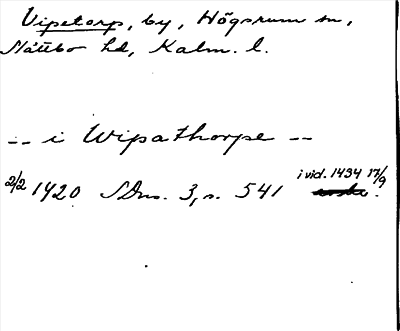 Vipetorp, by, Högsrum sn,
Slättbo hd, Kalm. l.
-- i Wipathorpe --
2/2 1420 SDns. 3, s. 541 i vid. 1434 17/9 .